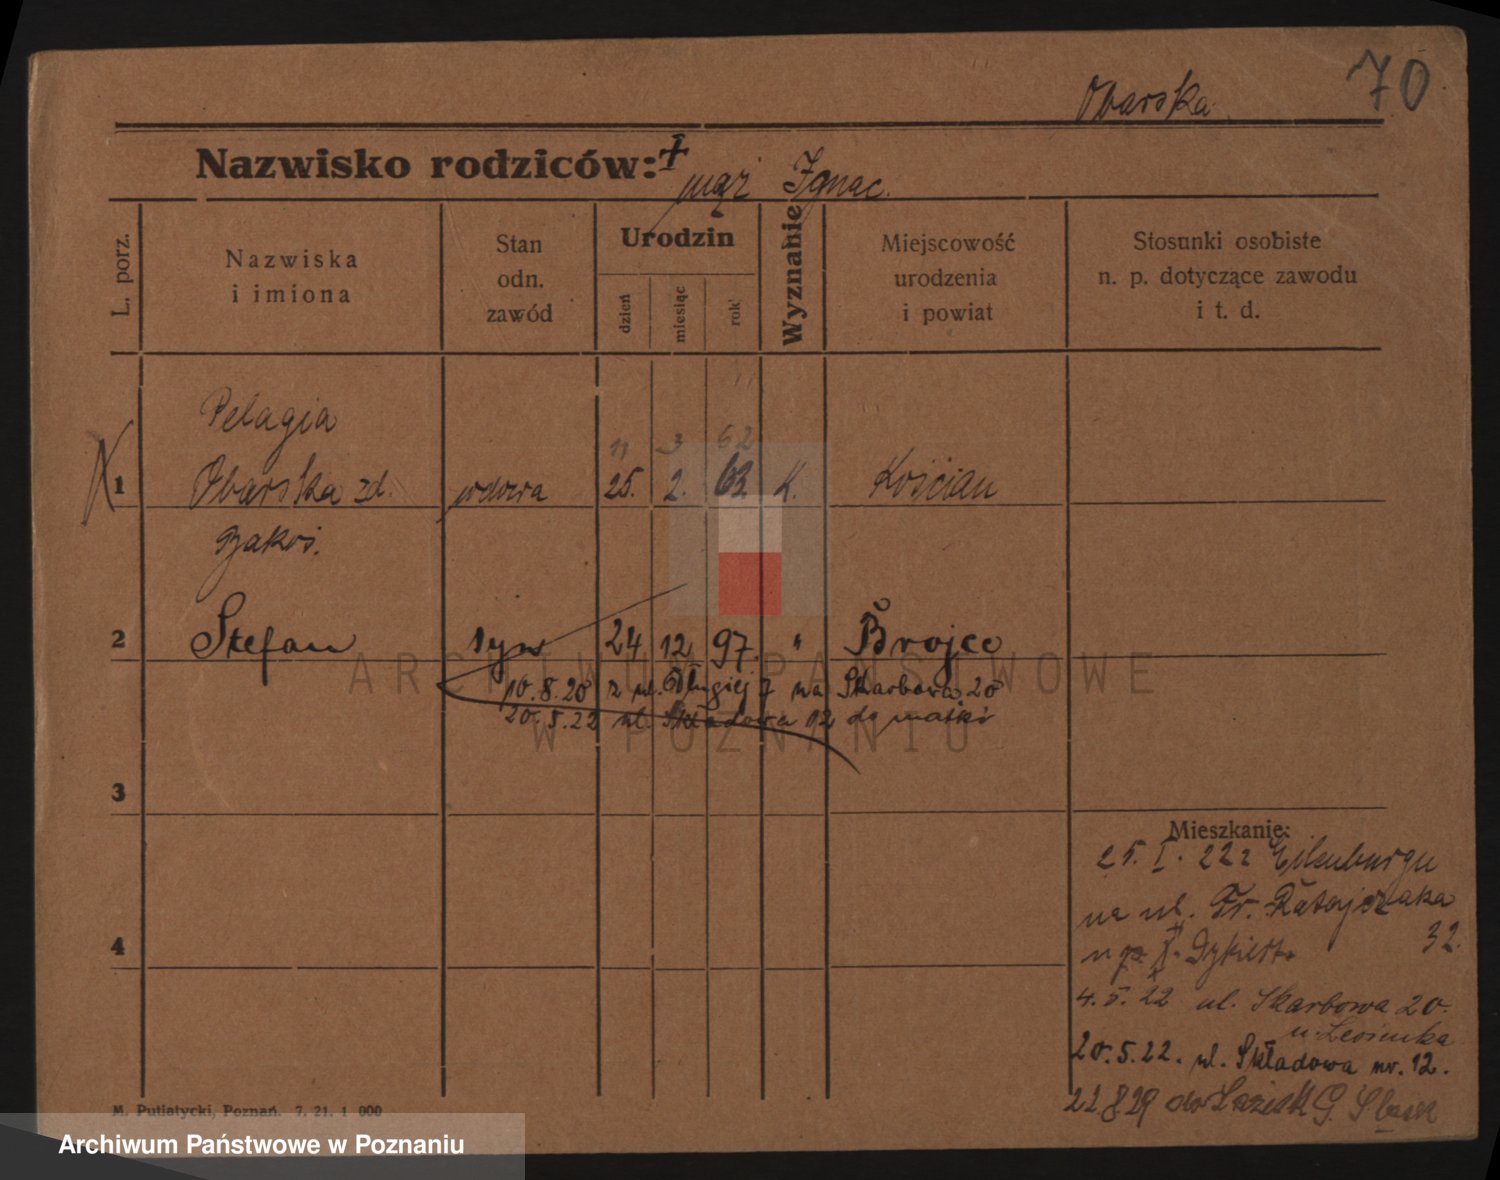 70
Obarska
Nazwisko rodziców: +
mąż Ignac.
L. porz.
Nazwiska
i imiona
Stan
odn.
zawód
Urodzin
dzień
miesiąc
rok
Wyznanie
Miejscowość
urodzenia
i powiat
Stosunki osobiste
n. p. dotyczące zawodu
i t. d.
Pelagia
11 3 62
1 Obarska zd. wdowa 25. 2. 63 K. Kościan
2 Stefan syn 24 12 97. " Brojce
10.8.20 z ul. Długiej 7 na Skarbowa 20
20.5.22 ul. Składowa 12 do matki
3
Mieszkanie:
25. I. 22 z Eilenburgu
na ul. Fr. Ratajczaka
32.
4
4.5.22 ul. Skarbowa 20.
20.5.22. ul. Składowa nr. 12.
22.8.29 do G.
M. Putiatycki, Poznań. 7. 21. 1 000
ARCHIWUM PAŃSTWOWE
W POZNANIU
Archiwum Państwowe w Poznaniu